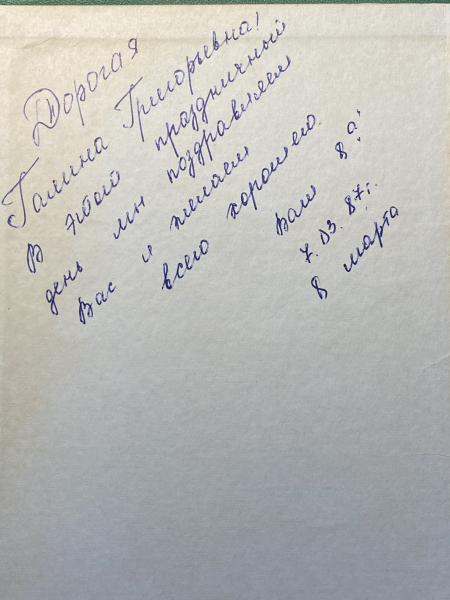 Дорогая
Галина Григорьевна!
В этот праздничный
день мы поздравляем
Вас и желаем
всего хорошего.
Ваш 8 а!
7. 03. 87г.
8 марта